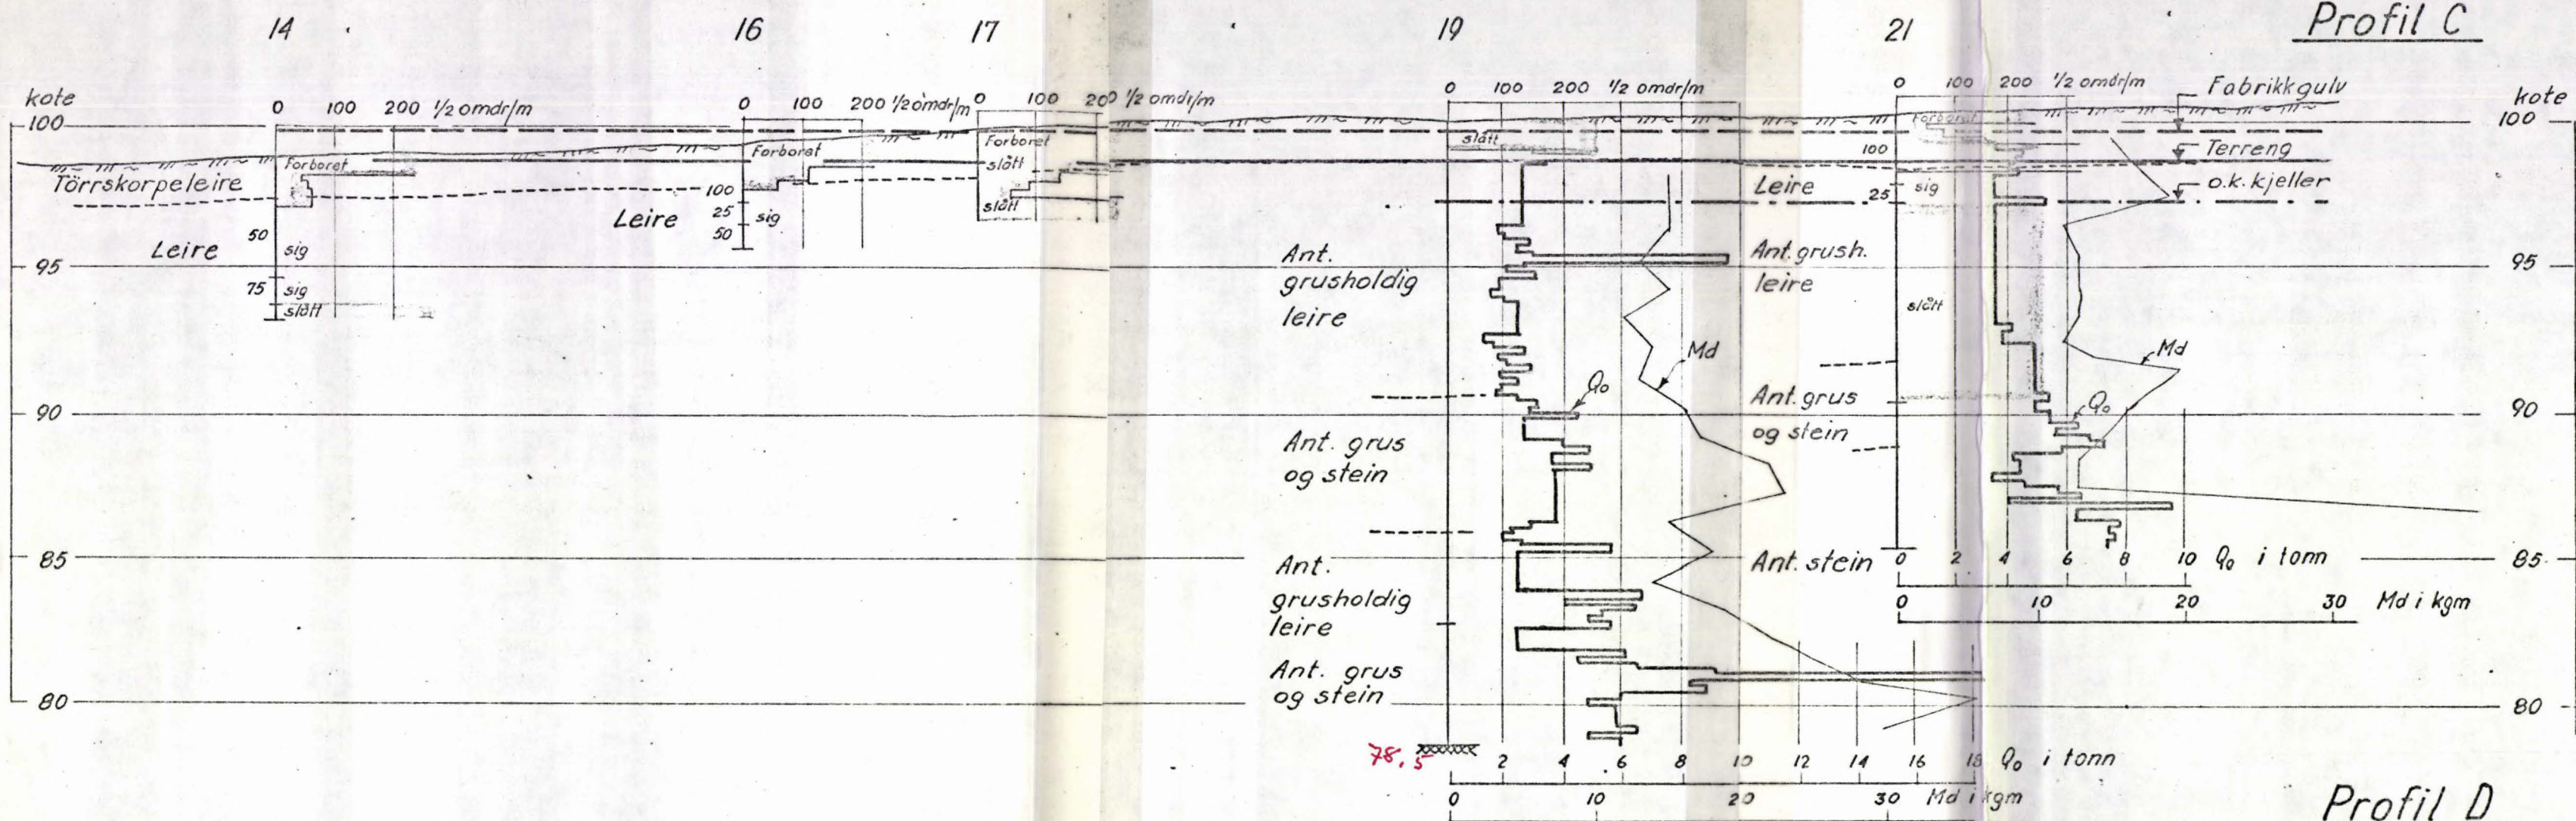 Profil C
14
16
17
19
21
kote
100
95
90
85
80
0 100 200 1/2 omdr/m
Forboret
Törrskorpeleire
Leire
50 sig
75 sig
slått
0 100 200 1/2 omdr/m
Forboret
100
25 sig
50
Leire
0 100 200 1/2 omdr/m
Forboret
slått
slått
0 100 200 1/2 omdr/m
slått
Ant.
grusholdig
leire
Md
Q₀
Ant. grus
og stein
Ant.
grusholdig
leire
Ant. grus
og stein
78,5
2 4 6 8 10 12 14 16 18 Q₀ i tonn
0 10 20 30 Md i kgm
0 100 200 1/2 omdr/m
Forboret
100
Leire
25 sig
Ant. grush.
leire
slått
Md
Ant. grus
og stein
Q₀
Ant. stein
0 2 4 6 8 10 Q₀ i tonn
0 10 20 30 Md i kgm
Fabrikkgulv
Terreng
o.k. kjeller
kote
100
95
90
85
80
Profil D